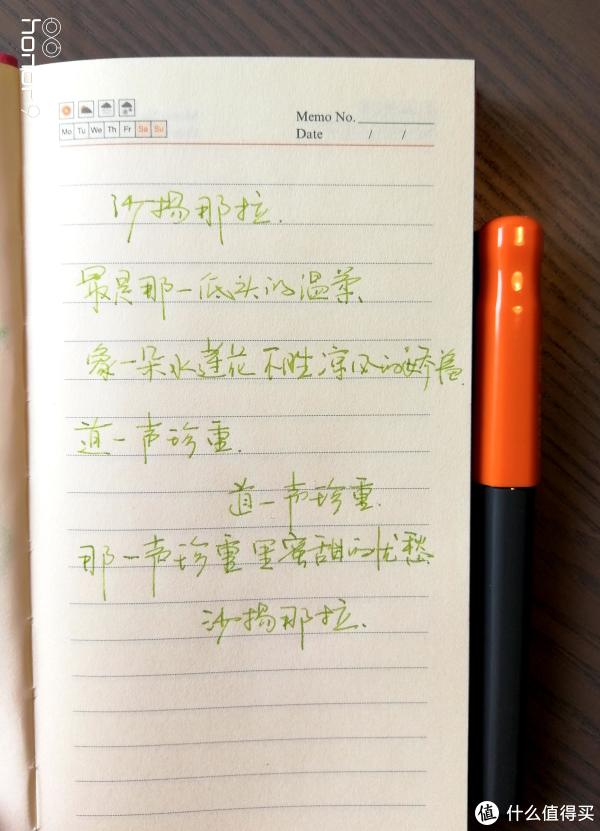 honor 9
Memo No.
Mo Tu We Th Fr Sa Su
Date / /
沙扬那拉.
最是那一低头的温柔、
象一朵水莲花不胜凉风的娇羞.
道一声珍重.
道一声珍重.
那一声珍重里蜜甜的忧愁
沙扬那拉.
值 什么值得买